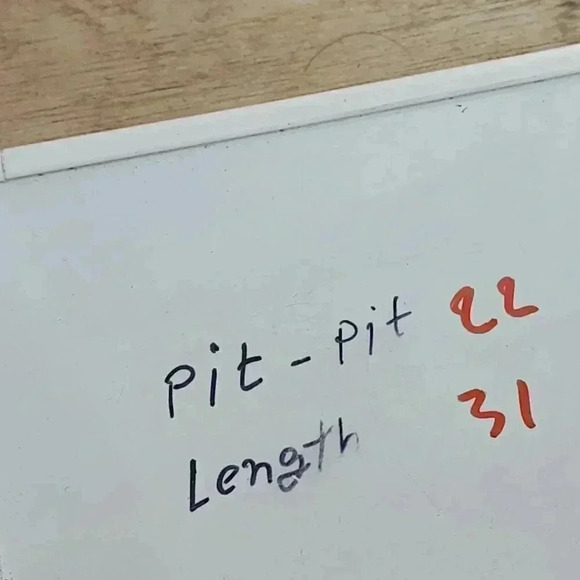 Pit - Pit 22
Length 31